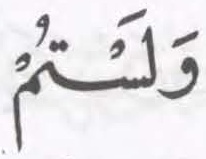 وَلَسْتُمْ